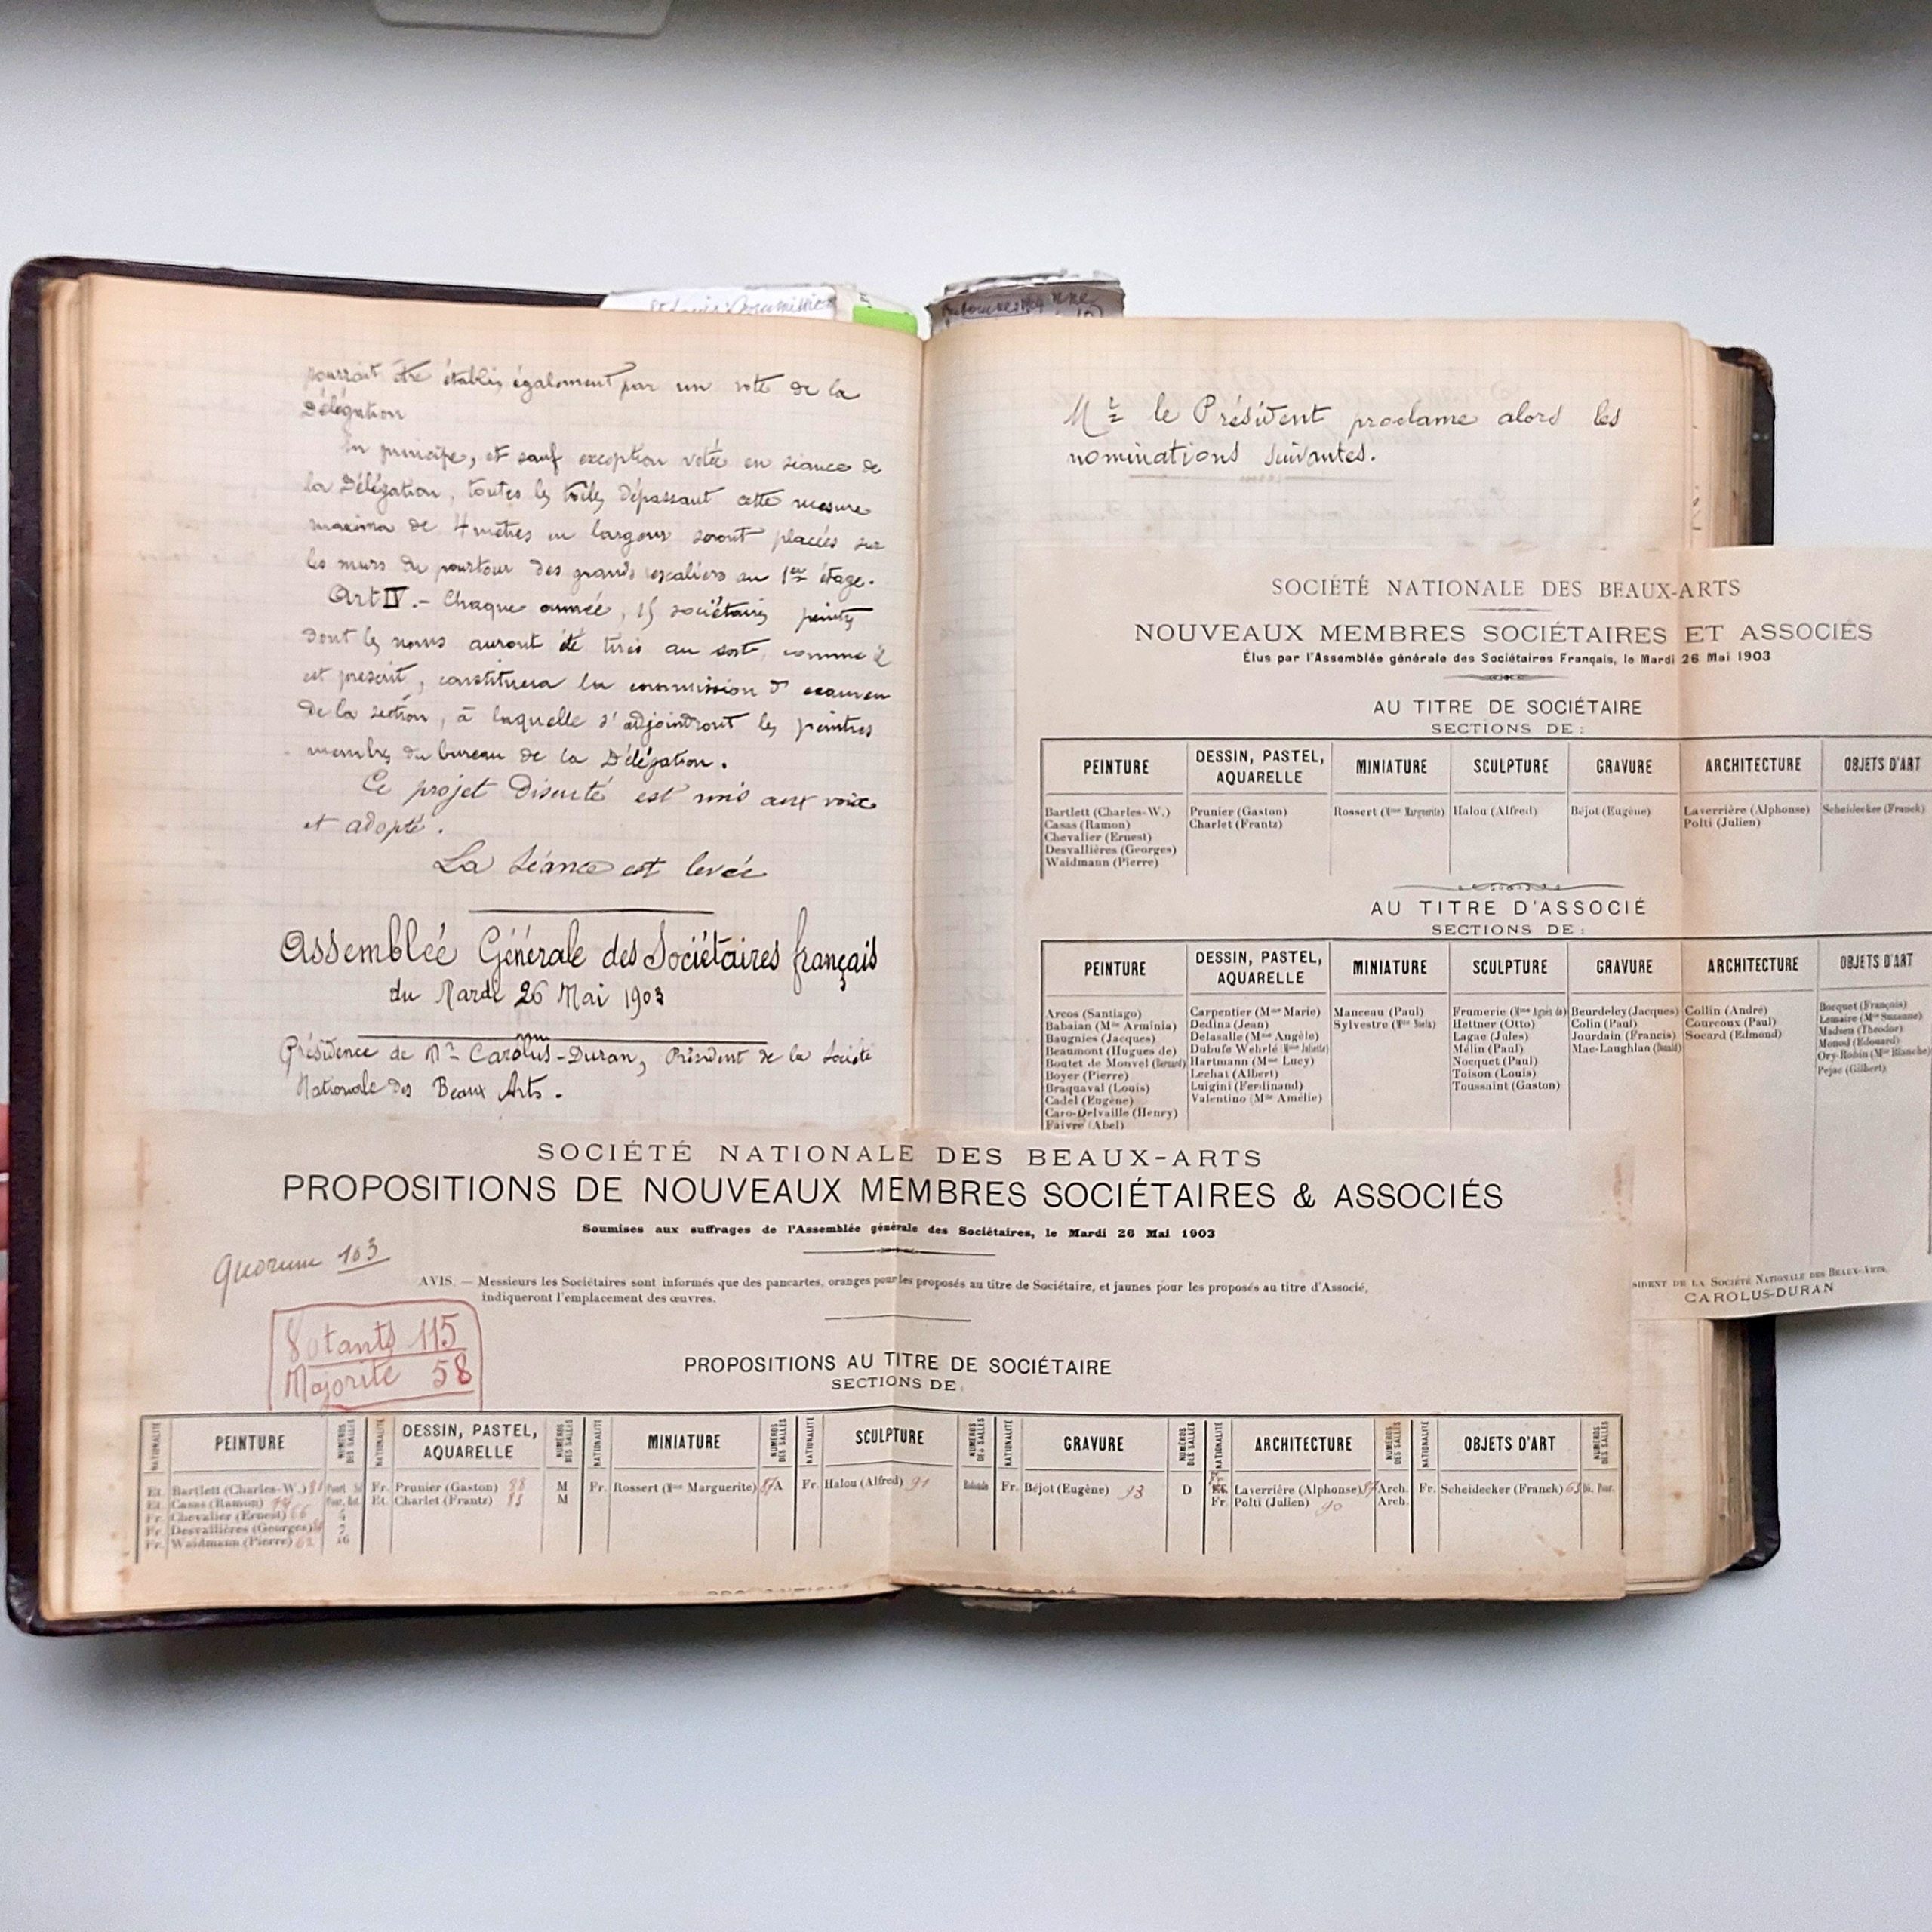 St Louis: Commission
pourrait être établis également par un vote de la
Délégation
En principe, et sauf exception votée en séance de
la Délégation, toutes les toiles dépassant cette mesure
maxima de 4 mètres en largeur seront placées sur
les murs du pourtour des grands escaliers au 1er étage.
Art IV. - Chaque année, 15 sociétaires peintres
dont les noms auront été tirés au sort, comme il
est prescrit, constituera la commission d'examen
de la section, à laquelle s'adjoindront les peintres
membres du bureau de la Délégation.
Ce projet discuté est mis aux voix
et adopté.
La séance est levée
Assemblée Générale des Sociétaires français
du Mardi 26 Mai 1903
Présidence de Mr Carolus-Duran, Président de la Société
Nationale des Beaux Arts.
Mr le Président proclame alors les
nominations suivantes.
SOCIÉTÉ NATIONALE DES BEAUX-ARTS
NOUVEAUX MEMBRES SOCIÉTAIRES ET ASSOCIÉS
Élus par l'Assemblée générale des Sociétaires Français, le Mardi 26 Mai 1903
AU TITRE DE SOCIÉTAIRE
SECTIONS DE :
PEINTURE
Bartlett (Charles-W.)
Casas (Ramon)
Chevalier (Ernest)
Desvallières (Georges)
Waidmann (Pierre)
DESSIN, PASTEL,
AQUARELLE
Prunier (Gaston)
Charlet (Frantz)
MINIATURE
Rossert (Mme Marguerite)
SCULPTURE
Halou (Alfred)
GRAVURE
Béjot (Eugène)
ARCHITECTURE
Laverrière (Alphonse)
Polti (Julien)
OBJETS D'ART
Scheidecker (Franck)
AU TITRE D'ASSOCIÉ
SECTIONS DE :
PEINTURE
Arcos (Santiago)
Babaian (Mlle Arminia)
Baugnies (Jacques)
Beaumont (Hugues de)
Boutet de Monvel (Bernard)
Boyer (Pierre)
Braquaval (Louis)
Cadel (Eugène)
Caro-Delvaille (Henry)
Faivre (Abel)
DESSIN, PASTEL,
AQUARELLE
Carpentier (Mme Marie)
Dedina (Jean)
Delasalle (Mme Angèle)
Dubufe Wehrlé (Mme Juliette)
Hartmann (Mme Lucy)
Lechat (Albert)
Luigini (Ferdinand)
Valentino (Mlle Amélie)
MINIATURE
Manceau (Paul)
Sylvestre
SCULPTURE
Frumerie (Mme Agnès de)
Hettner (Otto)
Lagae (Jules)
Mélin (Paul)
Nocquet (Paul)
Toison (Louis)
Toussaint (Gaston)
GRAVURE
Beurdeley (Jacques)
Colin (Paul)
Jourdain (Francis)
Mac-Laughlan (Donald)
ARCHITECTURE
Collin (André)
Courcoux (Paul)
Socard (Edmond)
OBJETS D'ART
Bocquet (François)
Lemaire (Mlle Suzanne)
Madsen (Theodor)
Monod (Édouard)
Ory-Robin (Mme Blanche)
Pejac (Gilbert)
SIDENT DE LA SOCIÉTÉ NATIONALE DES BEAUX-ARTS,
CAROLUS-DURAN
SOCIÉTÉ NATIONALE DES BEAUX-ARTS
PROPOSITIONS DE NOUVEAUX MEMBRES SOCIÉTAIRES & ASSOCIÉS
Soumises aux suffrages de l'Assemblée générale des Sociétaires, le Mardi 26 Mai 1903
Quorum 103
AVIS. — Messieurs les Sociétaires sont informés que des pancartes, oranges pour les proposés au titre de Sociétaire, et jaunes pour les proposés au titre d'Associé,
indiqueront l'emplacement des œuvres.
Votants 115
Majorité 58
PROPOSITIONS AU TITRE DE SOCIÉTAIRE
SECTIONS DE
NATIONALITÉ PEINTURE NUMÉROS DES SALLES
Et. Bartlett (Charles-W.) 81
Et. Casas (Ramon) 74
Fr. Chevalier (Ernest) 66 4
Fr. Desvallières (Georges) 7
Fr. Waidmann (Pierre) 62 16
NATIONALITÉ DESSIN, PASTEL, AQUARELLE NUMÉROS DES SALLES
Fr. Prunier (Gaston) 88 M
Et. Charlet (Frantz) 83 M
NATIONALITÉ MINIATURE NUMÉROS DES SALLES
Fr. Rossert (Mme Marguerite) A
NATIONALITÉ SCULPTURE NUMÉROS DES SALLES
Fr. Halou (Alfred) 91 Rotonde
NATIONALITÉ GRAVURE NUMÉROS DES SALLES
Fr. Béjot (Eugène) 93 D
NATIONALITÉ ARCHITECTURE NUMÉROS DES SALLES
Fr. Et. Laverrière (Alphonse) Arch.
Fr. Polti (Julien) 90 Arch.
NATIONALITÉ OBJETS D'ART NUMÉROS DES SALLES
Fr. Scheidecker (Franck) 63